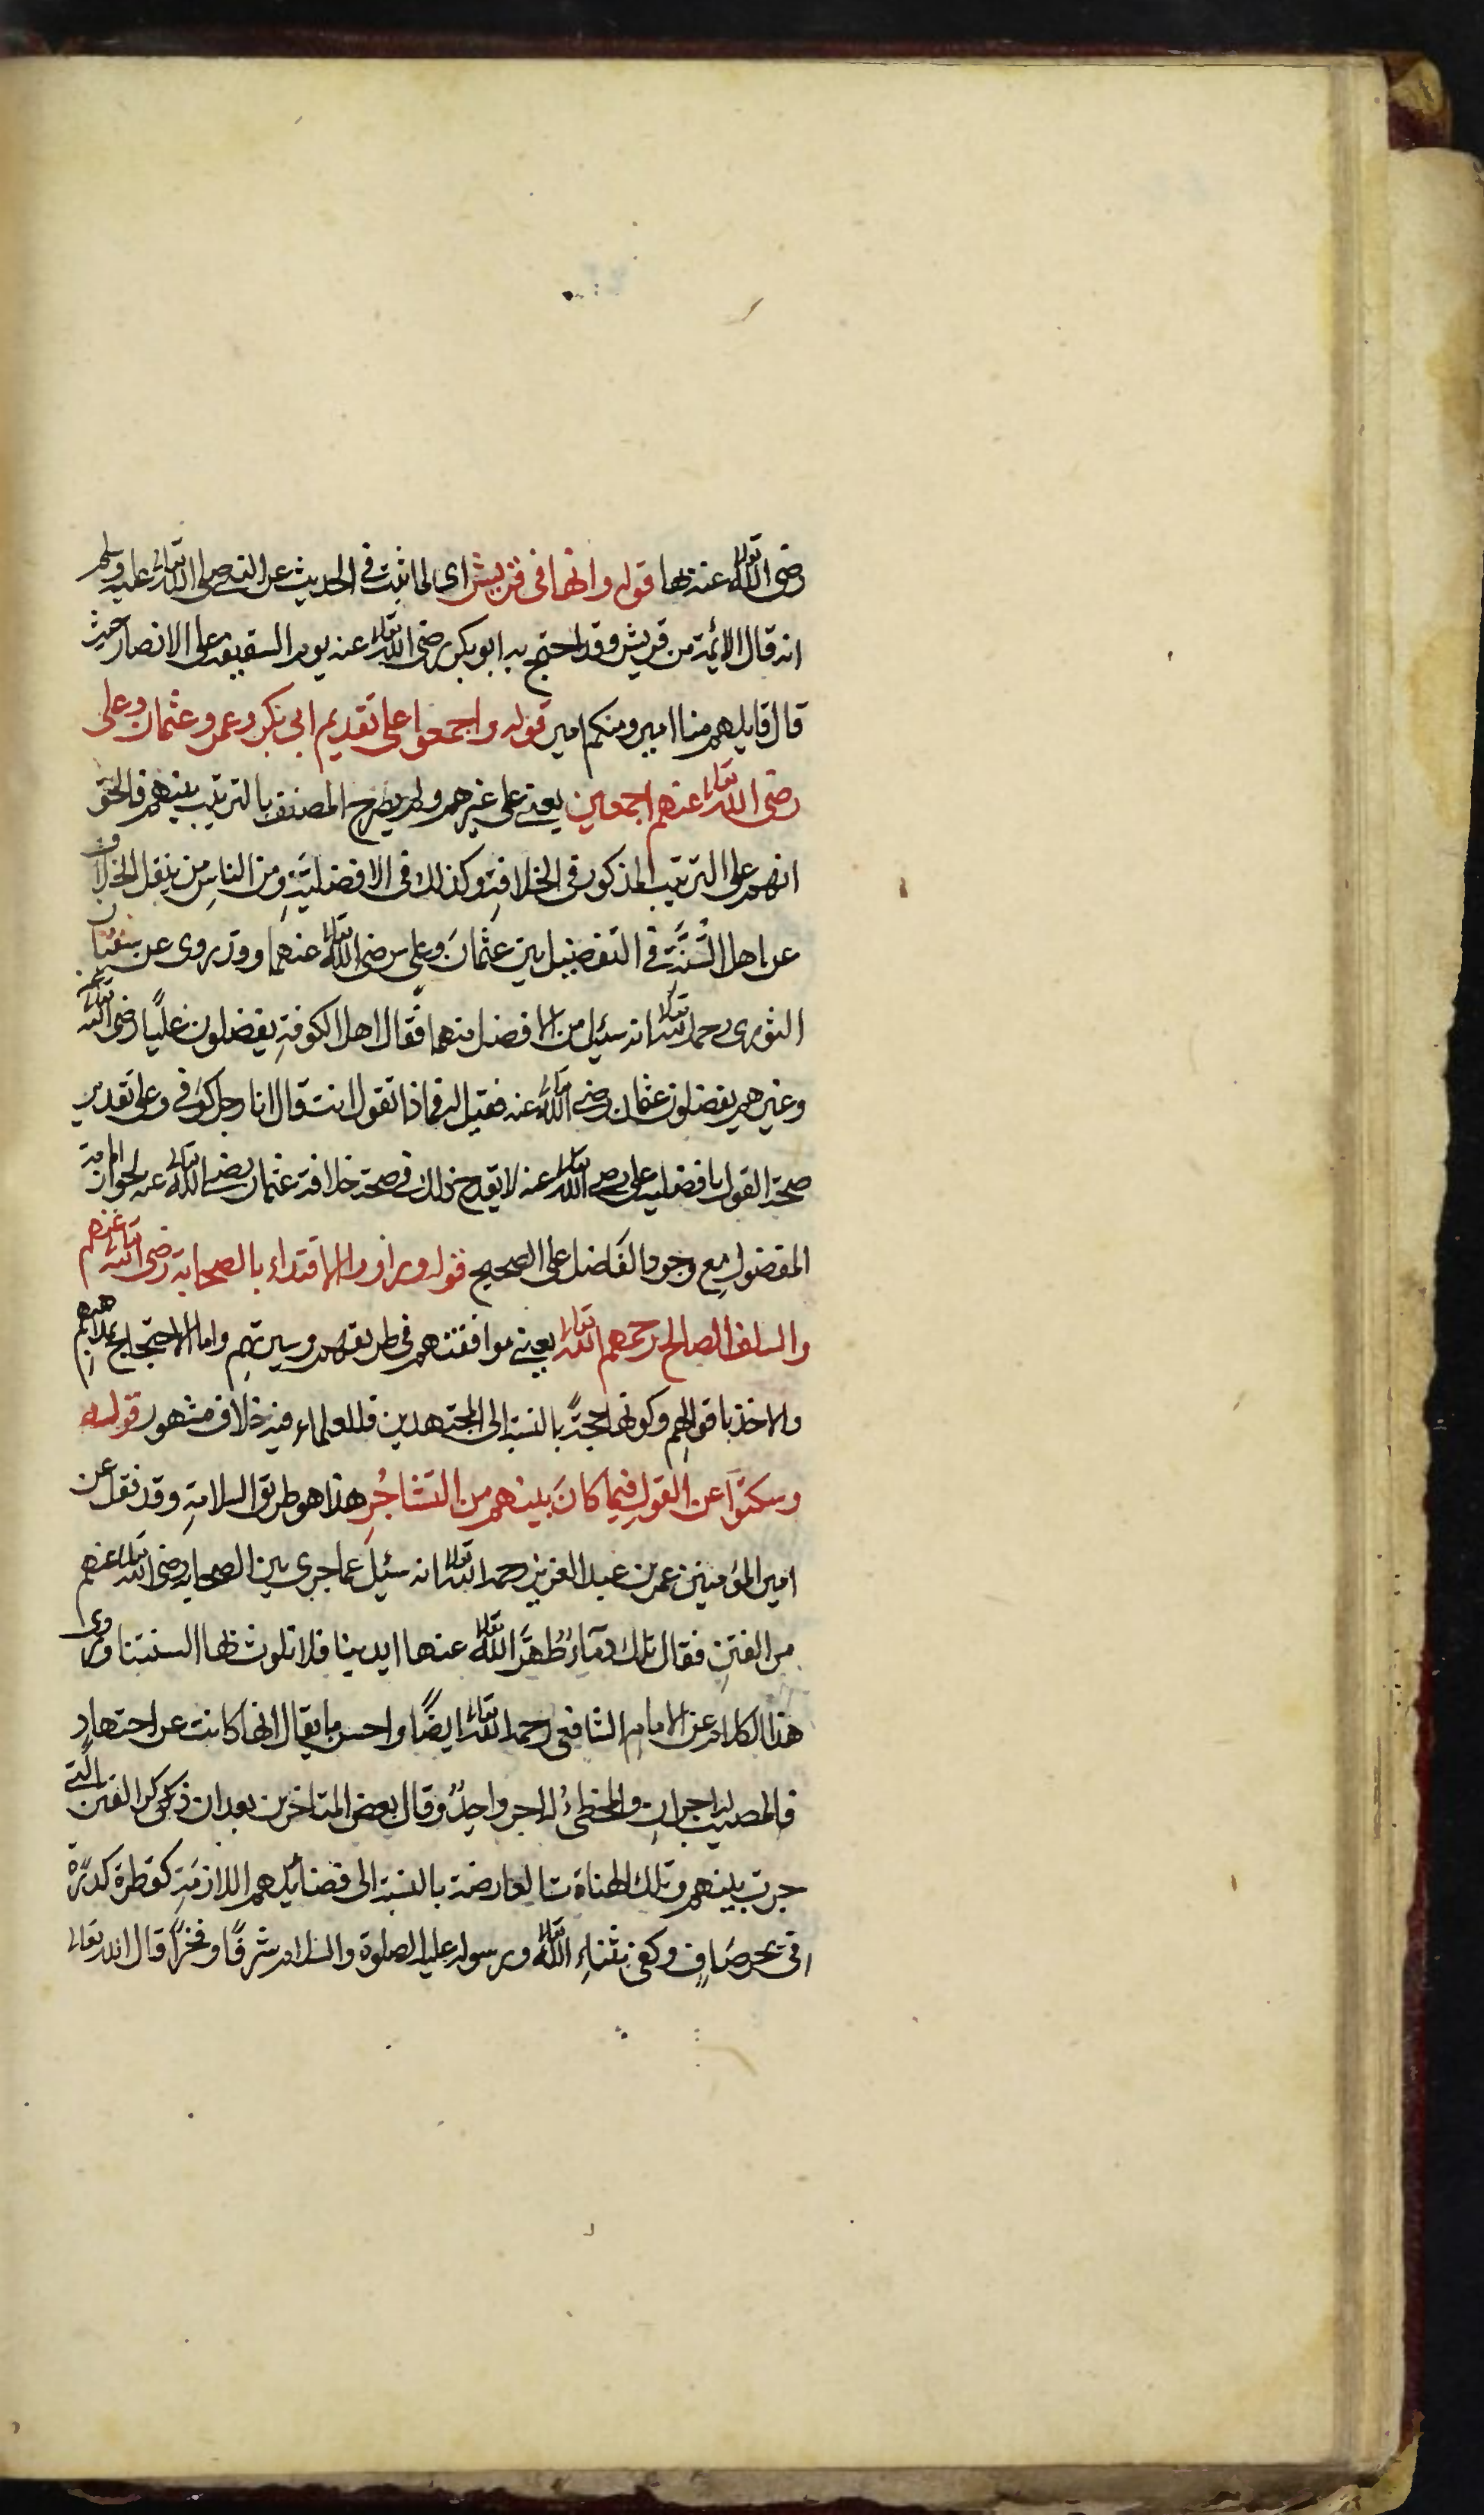 رضى الله تعالى عنها قوله وانها فى قريش اى لما ثبت فى الحديث عن النبى صلى الله تعالى عليه وسلم
انه قال الأئمة من قريش وقد احتج به ابو بكر رضى الله تعالى عنه يوم السقيفة على الانصار حيث
قال قايلهم منا امير ومنكم امير قوله واجمعوا على تقديم ابى بكر وعمر وعثمان وعلى
رضى الله تعالى عنهم اجمعين يعنى على غيرهم ولم يصرح المصنف بالترتيب بينهم فالحق
انهم على الترتيب المذكور فى الخلافةِ وكذلك فى الافضليَّةِ ومن الناسِ من ينقل الخلاف
عن اهل السُّنَّة فى التفضيل بين عثمانَ وعلى رضى الله تعالى عنهما وقد روى عن سفيان
الثورى رحمه الله تعالى انه سئيل من الافضل منهما فقال اهل الكوفةِ يفضلون عليًّا رضى الله تعالى عنه
وغيرهم يفضلون عثمان رضى الله تعالى عنه فقيل له فماذا تقول انت قال انا رجل كوفى وعلى تقدير
صحة القول بافضلية على رضى الله تعالى عنه لا يقدح ذلك فى صحة خلافة عثمان رضى الله تعالى عنه لجواز امامة
المفضولِ مع وجود الفَاضل على الصحيح قوله وراو الاقتداء بالصحابة رضى الله تعالى عنهم
والسلف الصالح رحمهم الله تعالى يعنى موافقتهم فى طريقهم وسيرتهِم واما الاحتجاج بمذاهبهم
والاخذ باقوالِهِم وكونها حجةً بالنسبة الى المجتهدين فللعلماء فيه خلاف مشهور قوله
وسكتوا عن القولِ فيما كانَ بينهم من التشاجُرِ هذا هو طريق السلامةِ وقد نقل عن
امير المؤمنين عمر بن عبد العزيز رحمه الله تعالى انه سئيل عما جرى بين الصحابه رضى الله تعالى عنهم
من الفتنِ فقال تلك دمآءٌ طهَّر الله تعالى عنها ايدينا فلا نلوث بها السنتنا وروى
هذا الكلام عن الامامِ الشافعى رحمه الله تعالى ايضًا واحسن ما يقال انها كانت عن اجتهادٍ
فالمصيب له اجرانِ والمخطىُ له اجر واحِدٌ وقال بعض المتاخرين بعد ان ذكر الفتن التى
جرت بينهم وتلك الهناة العارضة بالنسبة الى فضائلهم اللازمَةِ كقطرة كدرة
فى بحر صَافٍ وكفى بثناءِ الله تعالى ورسوله عليه الصلوة والسلام شرفًا وفخرًا قال الله تعالى